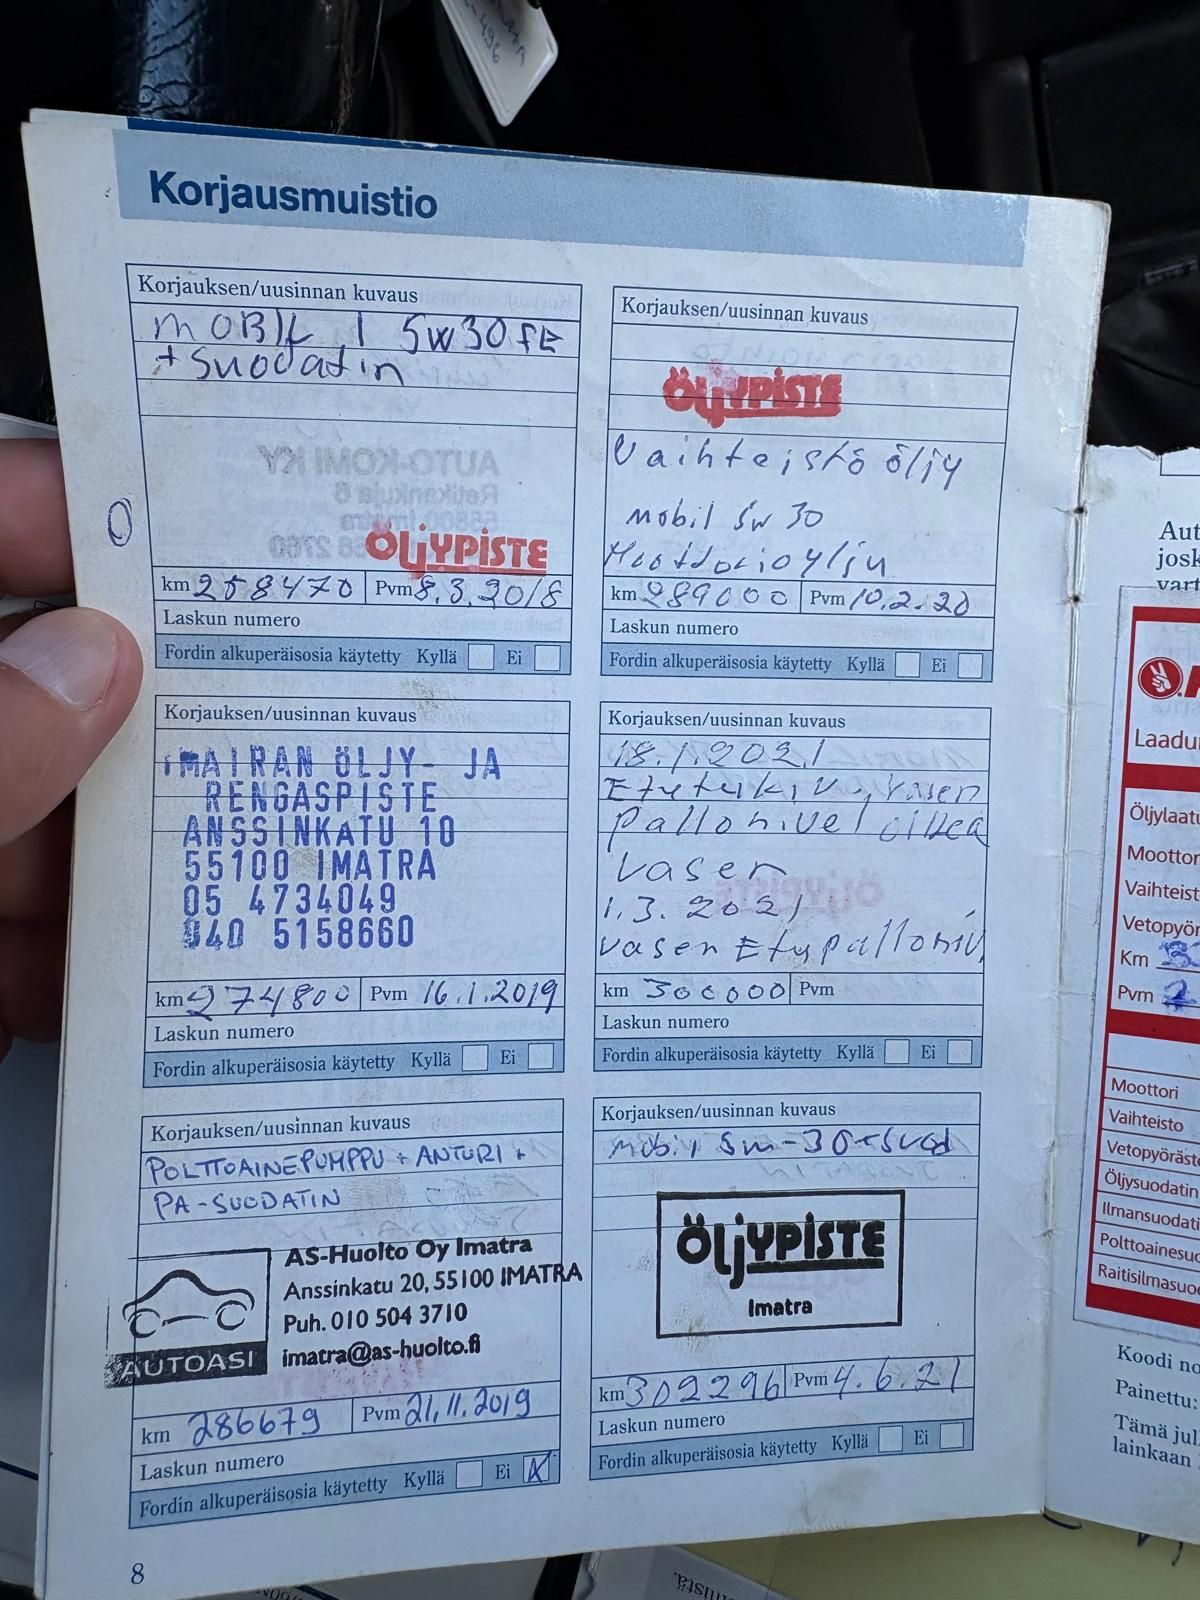 Korjausmuistio
Korjauksen/uusinnan kuvaus
MOBIL 1 5W30 FE
+ Suodatin
ÖljYPİSTE
km 258470 Pvm 8.3.2018
Laskun numero
Fordin alkuperäisosia käytetty Kyllä Ei
Korjauksen/uusinnan kuvaus
IMAIRAN ÖLJY- JA
RENGASPISTE
ANSSINKATU 10
55100 IMATRA
05 4734049
040 5158660
km 274800 Pvm 16.1.2019
Laskun numero
Fordin alkuperäisosia käytetty Kyllä Ei
Korjauksen/uusinnan kuvaus
POLTTOAINEPUMPPU + ANTURI +
PA-SUODATIN
AUTOASI
AS-Huolto Oy Imatra
Anssinkatu 20, 55100 IMATRA
Puh. 010 504 3710
imatra@as-huolto.fi
km 286679 Pvm 21.11.2019
Laskun numero
Fordin alkuperäisosia käytetty Kyllä Ei X
8
Korjauksen/uusinnan kuvaus
ÖljYPİSTE
Vaihteistö öljy
Mobil 5w 30
Moottorioylju
km 289000 Pvm 10.2.20
Laskun numero
Fordin alkuperäisosia käytetty Kyllä Ei
Korjauksen/uusinnan kuvaus
18.1.2021
vasen
pallonivel oikea
vasen
1.3.2021
vasen Etupalloniv.
km 300000 Pvm
Laskun numero
Fordin alkuperäisosia käytetty Kyllä Ei
Korjauksen/uusinnan kuvaus
Mobil 5w-30+suod
ÖljYPİSTE
Imatra
km 302296 Pvm 4.6.21
Laskun numero
Fordin alkuperäisosia käytetty Kyllä Ei
Aut
josk
vart
Laadu
Öljylaatu
Moottor
Vaihteist
Vetopyör
Km
Pvm
Moottori
Vaihteisto
Vetopyöräst
Öljysuodatin
Ilmansuodati
Polttoainesuo
Raitisilmasuo
Koodi no
Painettu:
Tämä jul
lainkaan